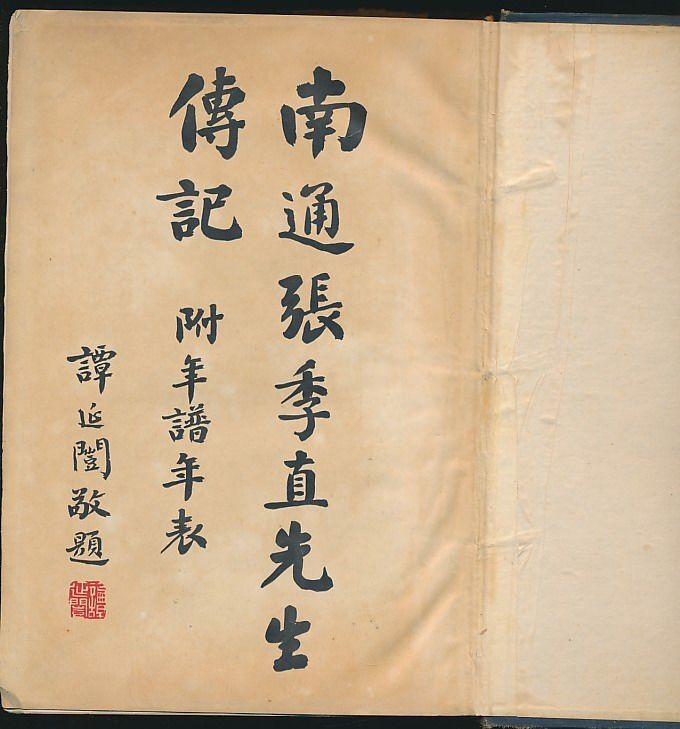 南通張季直先生
傳記 附年譜年表
譚延闓敬題